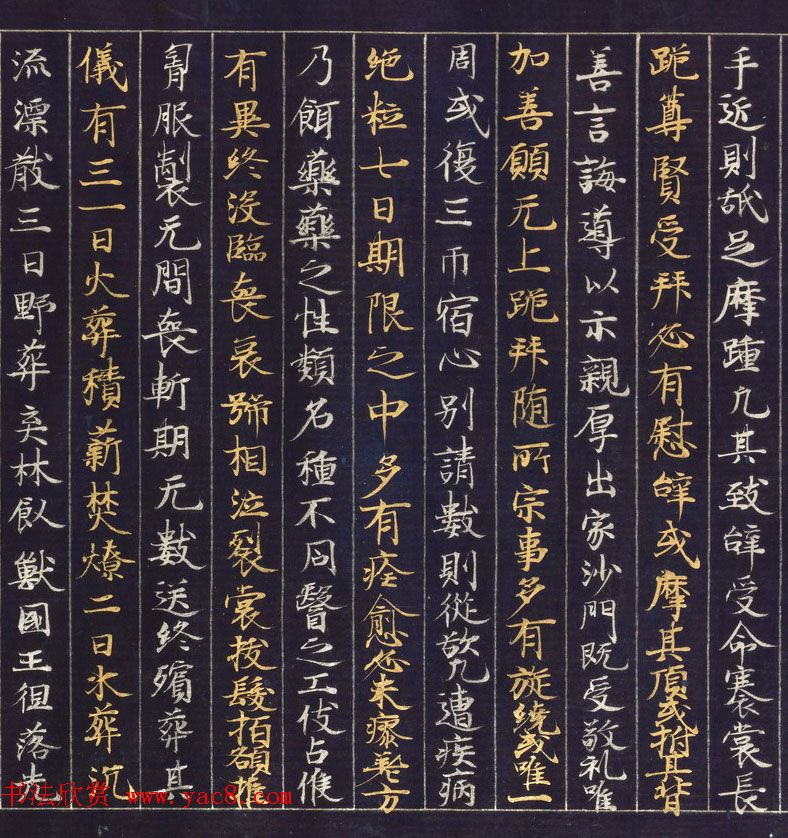 手近則舐足摩踵凡其致辞受命褰裳長
跪尊賢受拜必有慰辞或摩其頂或拊其背
善言誨導以示親厚出家沙門既受敬礼唯
加善願无上跪拜随所宗事多有旋繞或唯一
周或復三帀宿心别請數則從欲凡遭疾病
絶粒七日期限之中多有痊愈必未瘳差方
乃餌藥藥之性類名種不同醫之工伎占候
有異終没臨喪哀號相泣裂裳拔髮拍額椎
胷服製无間喪斬期无數送終殯葬其
儀有三一日火葬積薪焚燎二日水葬沉
流漂散三日野葬弃林飤獸國王徂落先
书法欣赏 www.yac8.com